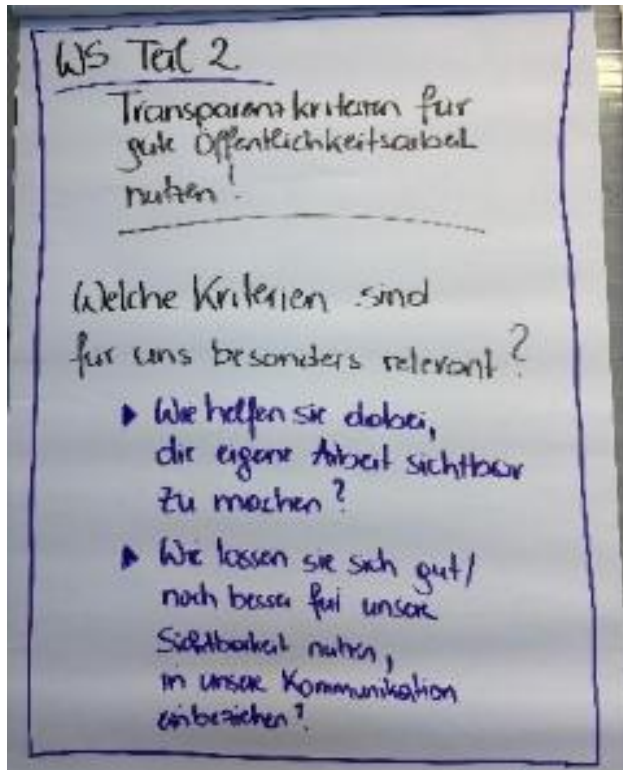 WS Teil 2
Transparenzkriterien für
gute Öffentlichkeitsarbeit
nutzen!
Welche Kriterien sind
für uns besonders relevant?
▸ Wie helfen sie dabei,
die eigene Arbeit sichtbar
zu machen?
▸ Wie lassen sie sich gut/
noch besser für unsere
Sichtbarkeit nutzen,
in unsere Kommunikation
einbeziehen?